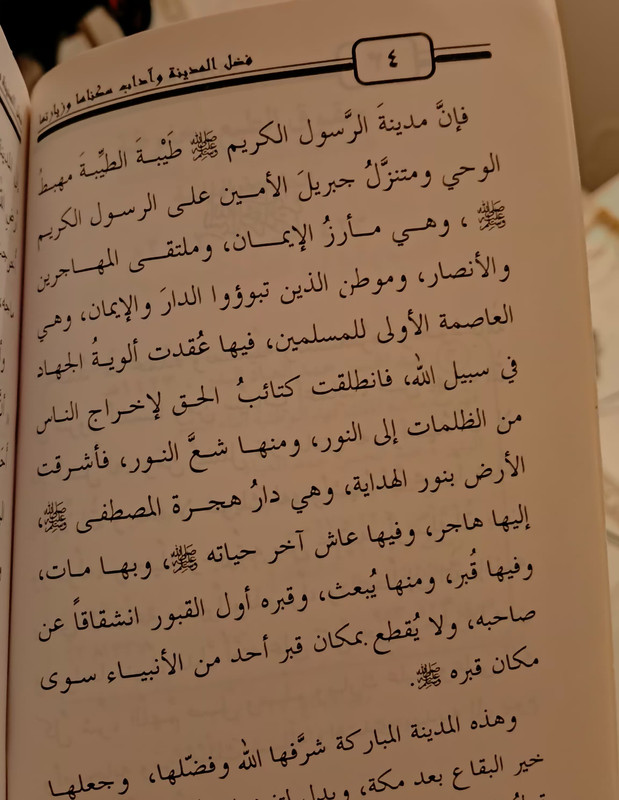 ٤
فضل المدينة وآداب سكناها وزيارتها
فإنَّ مدينةَ الرَّسول الكريم ﷺ طَيْبـةَ الطيِّبـةَ مهبـطُ
الوحي ومتنزَّلُ جبريلَ الأمـين علـى الرسـول الكريم
ﷺ ، وهـي مـأرزُ الإيمـان، وملتقـى المهـاجرين
والأنصار، وموطن الذين تبوؤوا الدارَ والإيمان، وهي
العاصمة الأولى للمسلمين، فيها عُقدت ألويـةُ الجهاد
في سبيل الله، فانطلقت كتائبُ الحـق لإخـراج الناس
من الظلمات إلى النور، ومنهـا شعَّ النـور، فأشـرقت
الأرض بنور الهداية، وهي دارُ هجـرة المصطفـى ﷺ،
إليها هاجر، وفيها عاش آخر حياته ﷺ، وبهـا مـات،
وفيها قُبر، ومنها يُبعث، وقبره أول القبور انشقاقاً عن
صاحبه، ولا يُقطع بمكان قبر أحد من الأنبيـاء سـوى
مكان قبره ﷺ.
وهذه المدينة المباركة شرَّفها الله وفضّلها، وجعلهـا
خير البقاع بعد مكة، ويدل